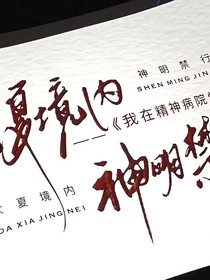 神明禁行
SHEN MING JIN
夏境内
——《我在精神病院
大夏境内
DA XIA JING NEI
神明禁